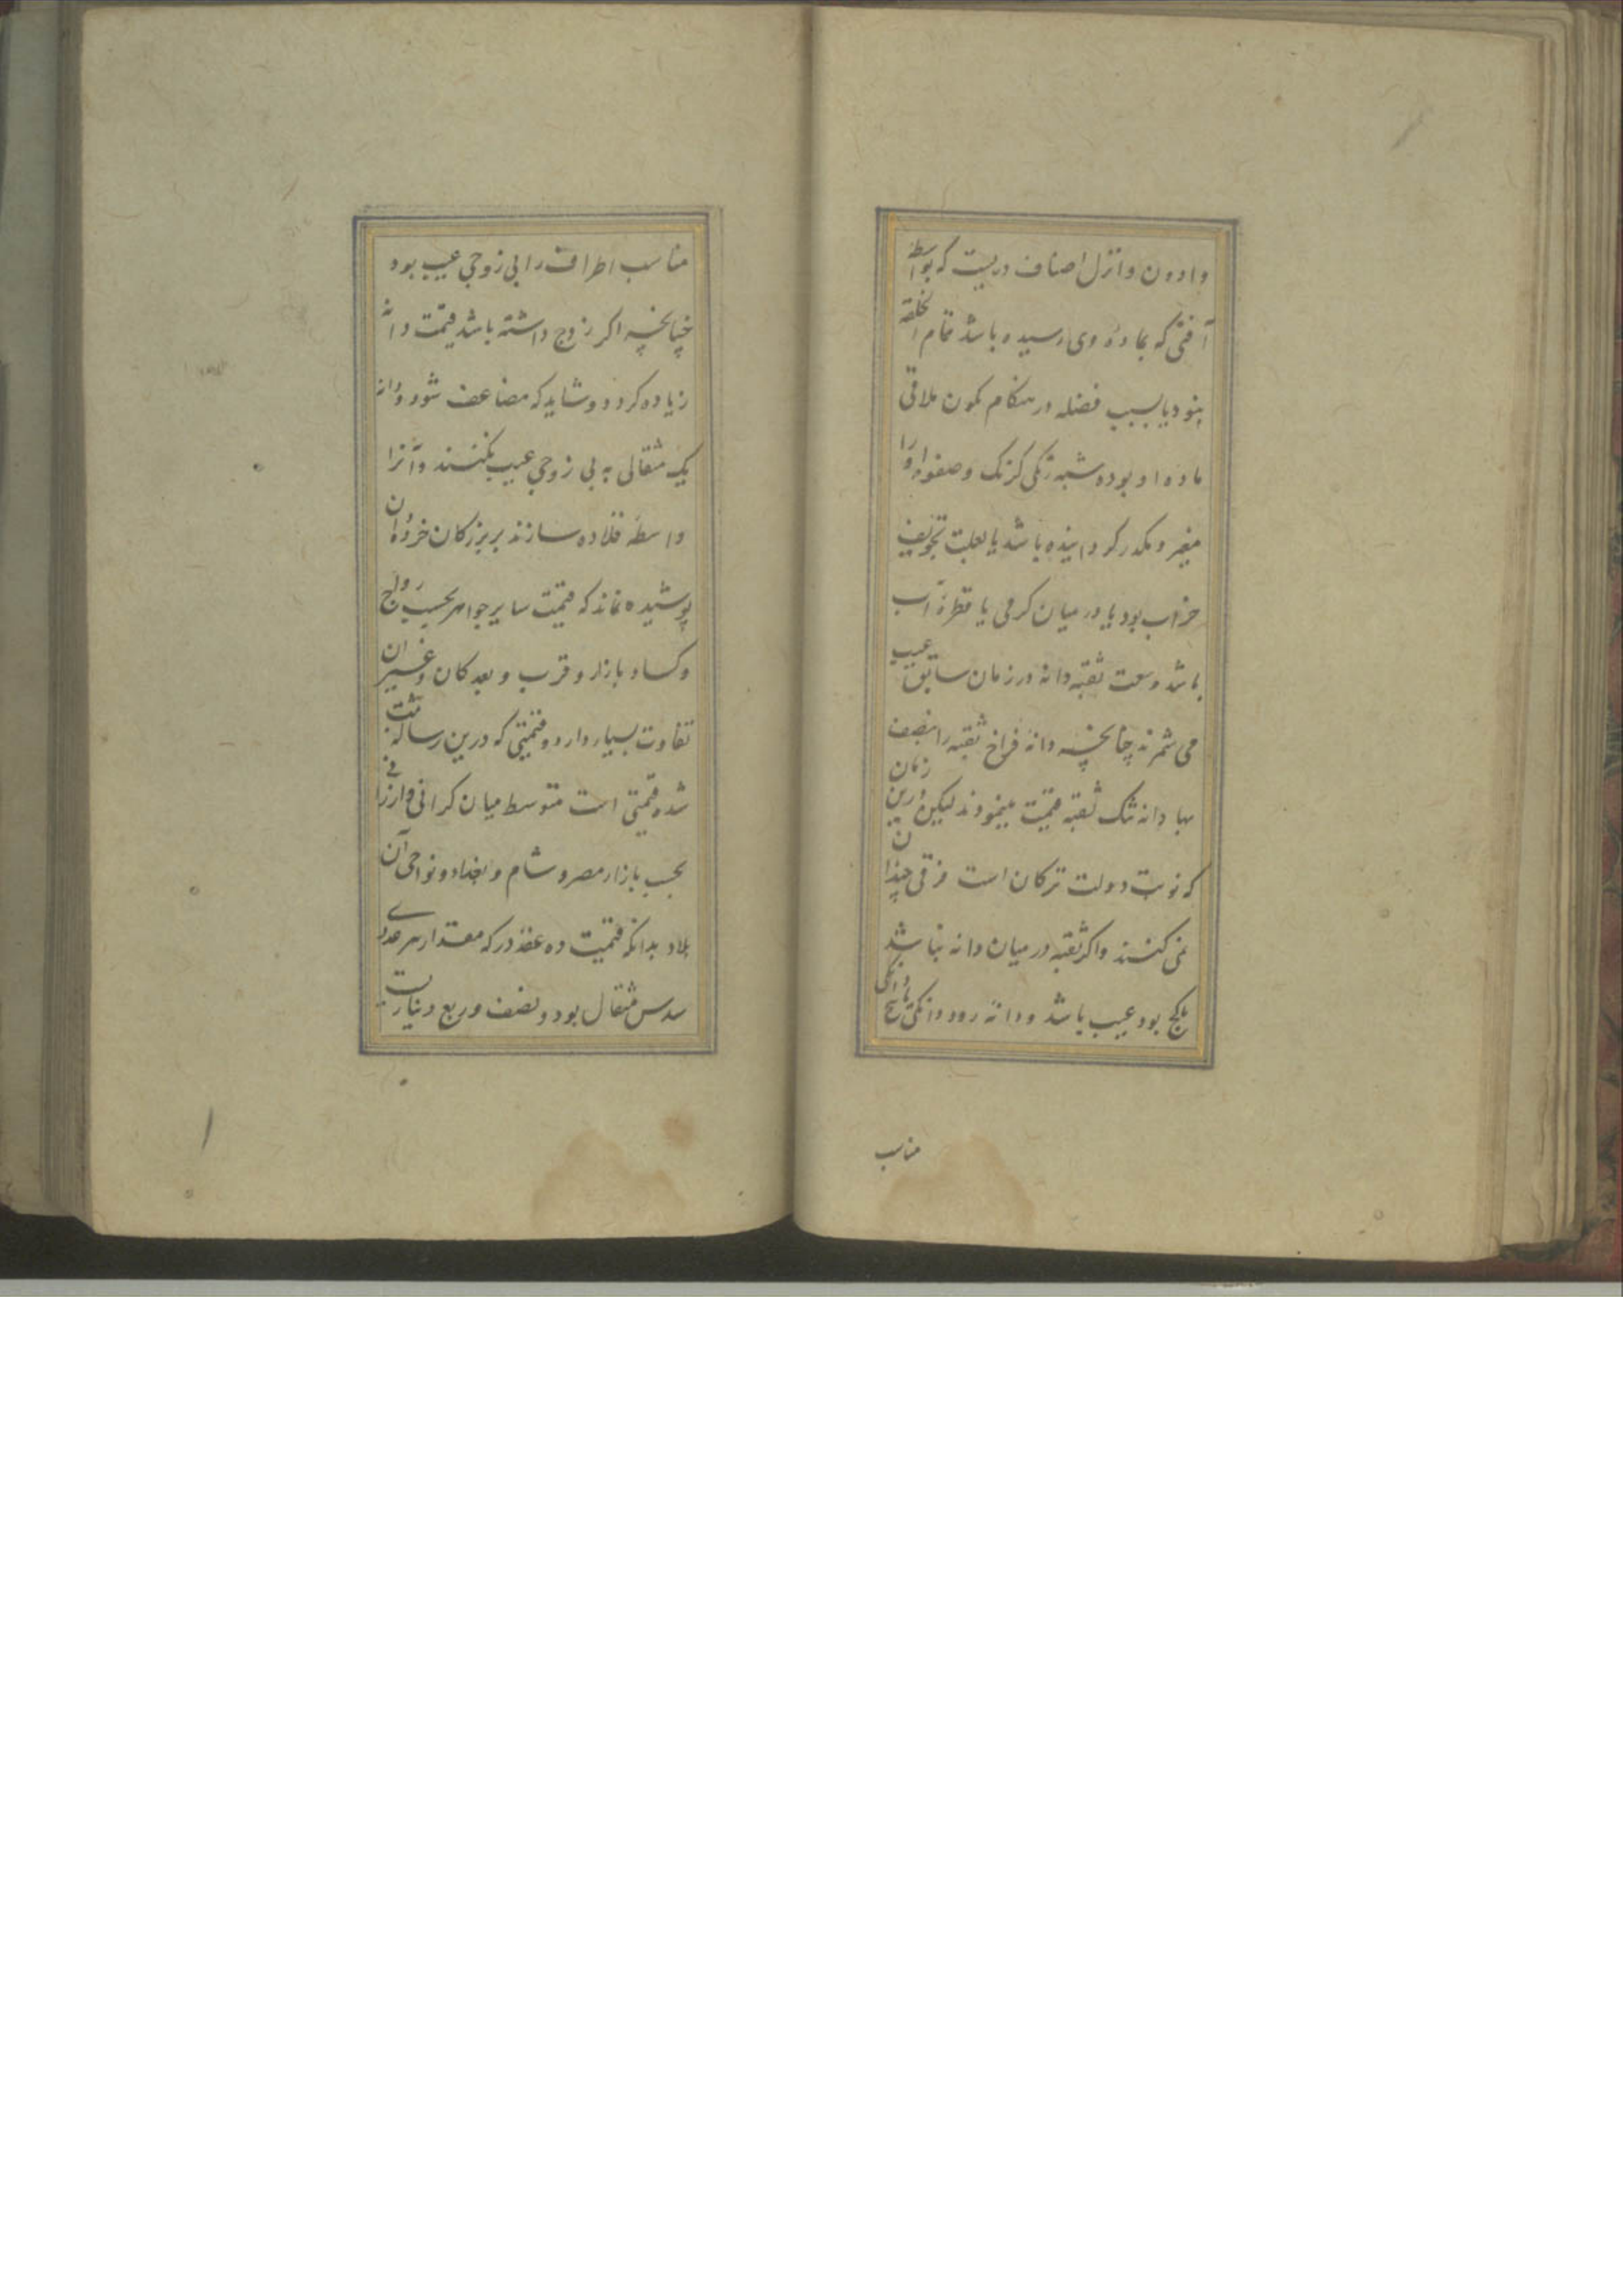 وادون وانزل اصناف دریست که بواسطه
آفتی که بمادهٔ وی رسیده باشد تمام الخلقه
نبود یا بسبب فضله در هنکام کمون ملاقی
مادهٔ او بوده شبه رنکی کزنک وصفوا او را
مغیر و مکدر کردانیده باشد یا بعلت تجویف
خراب بود یا در میان کرمی یا قطرهٔ آب
باشد وسعت ثقبه دانه در زمان سابق عیب
می شمرند چنانچه دانه فراخ ثقبه را بنصف
بهاء دانه تنک ثقبه قیمت مینمودند لیکن درین زمان
که نوبت دولت ترکان است فرقی چندان
نمی کنند واکر ثقبه در میان دانه نباشد
یا کج بود عیب باشد ودانه دو دانکی تا سه دانکی
مناسب
مناسب اطراف را بی زوجی عیب بود
چنانچه اکر زوج داشته باشد قیمت دانه
زیاده کردد و شاید که مضاعف شود ودانه
یک مثقالی به بی زوجی عیب نکنند وآنرا
واسطهٔ قلاده سازند بر بزرکان خرده دان
پوشیده نماند که قیمت سایر جواهر بحسب رواج
وکساد بازار و قرب و بعد کان وغیر ان
تفاوت بسیار دارد و قیمتی که درین رساله ثبت
شده قیمتی است متوسط میان کرانی وارزانی
بحسب بازار مصر و شام و بغداد و نواحی آن
بلاد بدانکه قیمت ده عقد در که مقدار هر عددی
سدس مثقال بود و نصف و ربع دیناریست